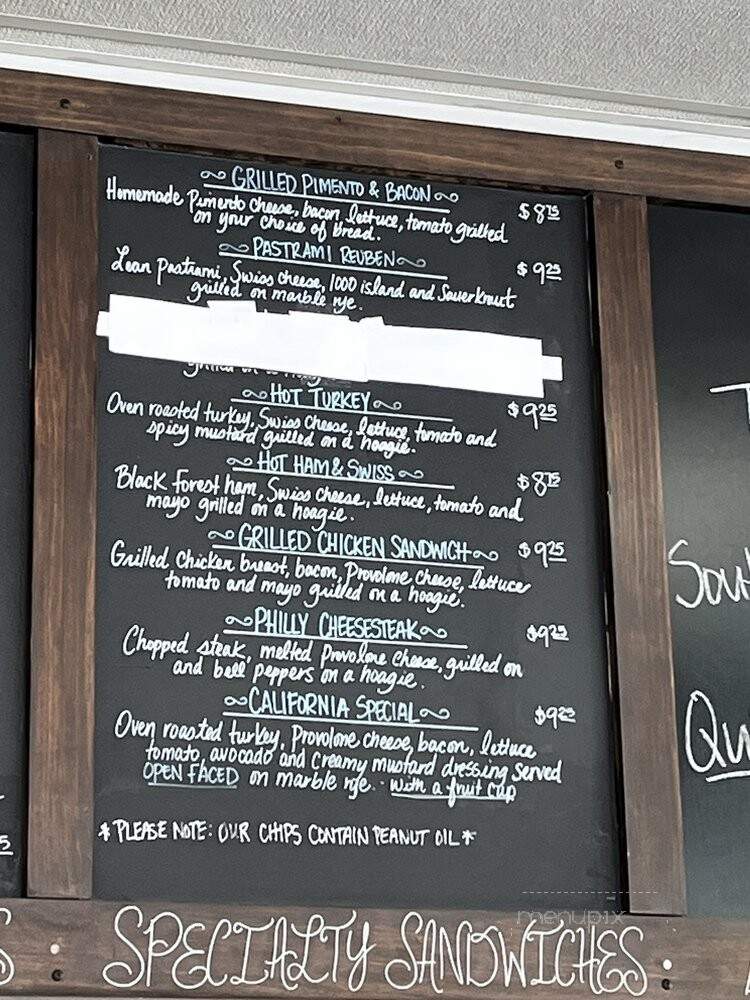 GRILLED PIMENTO & BACON
$8 75
Homemade Pimento cheese, bacon, lettuce, tomato grilled
on your choice of bread.
PASTRAMI REUBEN
$9 25
Lean Pastrami, Swiss cheese, 1000 island and Sauerkraut
grilled on marble rye.
HOT TURKEY
$9 25
Oven roasted turkey, Swiss Cheese, lettuce, tomato and
spicy mustard grilled on a hoagie.
HOT HAM & SWISS
$8 75
Black Forest ham, Swiss cheese, lettuce, tomato and
mayo grilled on a hoagie.
GRILLED CHICKEN SANDWICH
$9 25
Grilled Chicken breast, bacon, Provolone cheese, lettuce
tomato and mayo grilled on a hoagie.
PHILLY CHEESESTEAK
$9 25
Chopped steak, melted Provolone cheese, grilled on
and bell peppers on a hoagie.
CALIFORNIA SPECIAL
$9 25
Oven roasted turkey, Provolone cheese, bacon, lettuce
tomato, avocado and Creamy mustard dressing served
OPEN FACED on marble rye - with a fruit cup
*PLEASE NOTE: OUR CHIPS CONTAIN PEANUT OIL*
menupix
SPECIALTY SANDWICHES